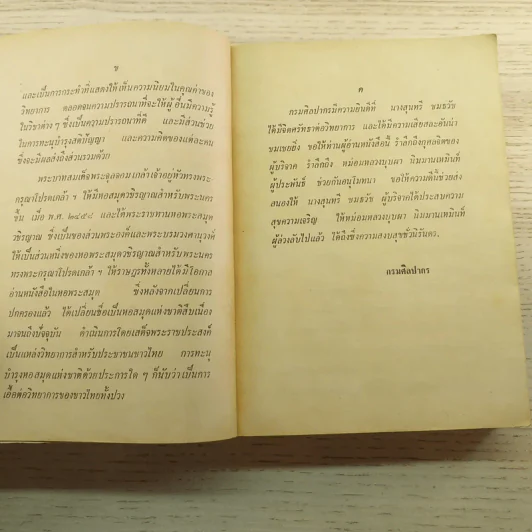 ข
และเป็นการกระทำที่แสดงให้เห็นความนิยมในคุณค่าของ
วิทยาการ ตลอดจนความปรารถนาที่จะให้ผู้อื่นมีความรู้
ในวิชาต่าง ๆ ซึ่งเป็นความปรารถนาที่ดี และมีส่วนช่วย
ในการทะนุบำรุงสติปัญญา และความคิดของแต่ละคน
ซึ่งจะมีผลส่งถึงส่วนรวมด้วย
พระบาทสมเด็จพระจุลจอมเกล้าเจ้าอยู่หัวทรงพระ
กรุณาโปรดเกล้า ฯ ให้มีหอสมุดวชิรญาณสำหรับพระนคร
ขึ้น เมื่อ พ.ศ. ๒๔๔๘ และได้พระราชทานหอพระสมุด
วชิรญาณ ซึ่งเป็นของส่วนพระองค์และพระบรมวงศานุวงศ์
ให้เป็นส่วนหนึ่งของหอพระสมุดวชิรญาณสำหรับพระนคร
ทรงพระกรุณาโปรดเกล้า ฯ ให้ราษฎรทั้งหลายได้มีโอกาส
อ่านหนังสือในหอพระสมุด ซึ่งหลังจากเปลี่ยนการ
ปกครองแล้ว ได้เปลี่ยนชื่อเป็นหอสมุดแห่งชาติสืบเนื่อง
มาจนถึงปัจจุบัน ดำเนินการโดยเสด็จพระราชประสงค์
เป็นแหล่งวิทยาการสำหรับประชาชนชาวไทย การทะนุ
บำรุงหอสมุดแห่งชาติด้วยประการใด ๆ ก็นับว่าเป็นการ
เอื้อต่อวิทยาการของชาวไทยทั้งปวง
ค
กรมศิลปากรมีความยินดีที่ นางสุนทรี ชมธวัช
ได้มีจิตศรัทธาต่อวิทยาการ และได้มีความเสียสละอันน่า
ชมเชยยิ่ง ขอให้ท่านผู้อ่านหนังสือนี้ รำลึกถึงกุศลจิตของ
ผู้บริจาค รำลึกถึง หม่อมหลวงบุบผา นิมมานเหมินท์
ผู้ประพันธ์ ช่วยกันอนุโมทนา ขอให้ความดีนี้ช่วยส่ง
สนองให้ นางสุนทรี ชมธวัช ผู้บริจาคได้ประสบความ
สุขความเจริญ ให้หม่อมหลวงบุบผา นิมมานเหมินท์
ผู้ล่วงลับไปแล้ว ได้ถึงซึ่งความสงบสุขชั่วนิรันดร.
กรมศิลปากร